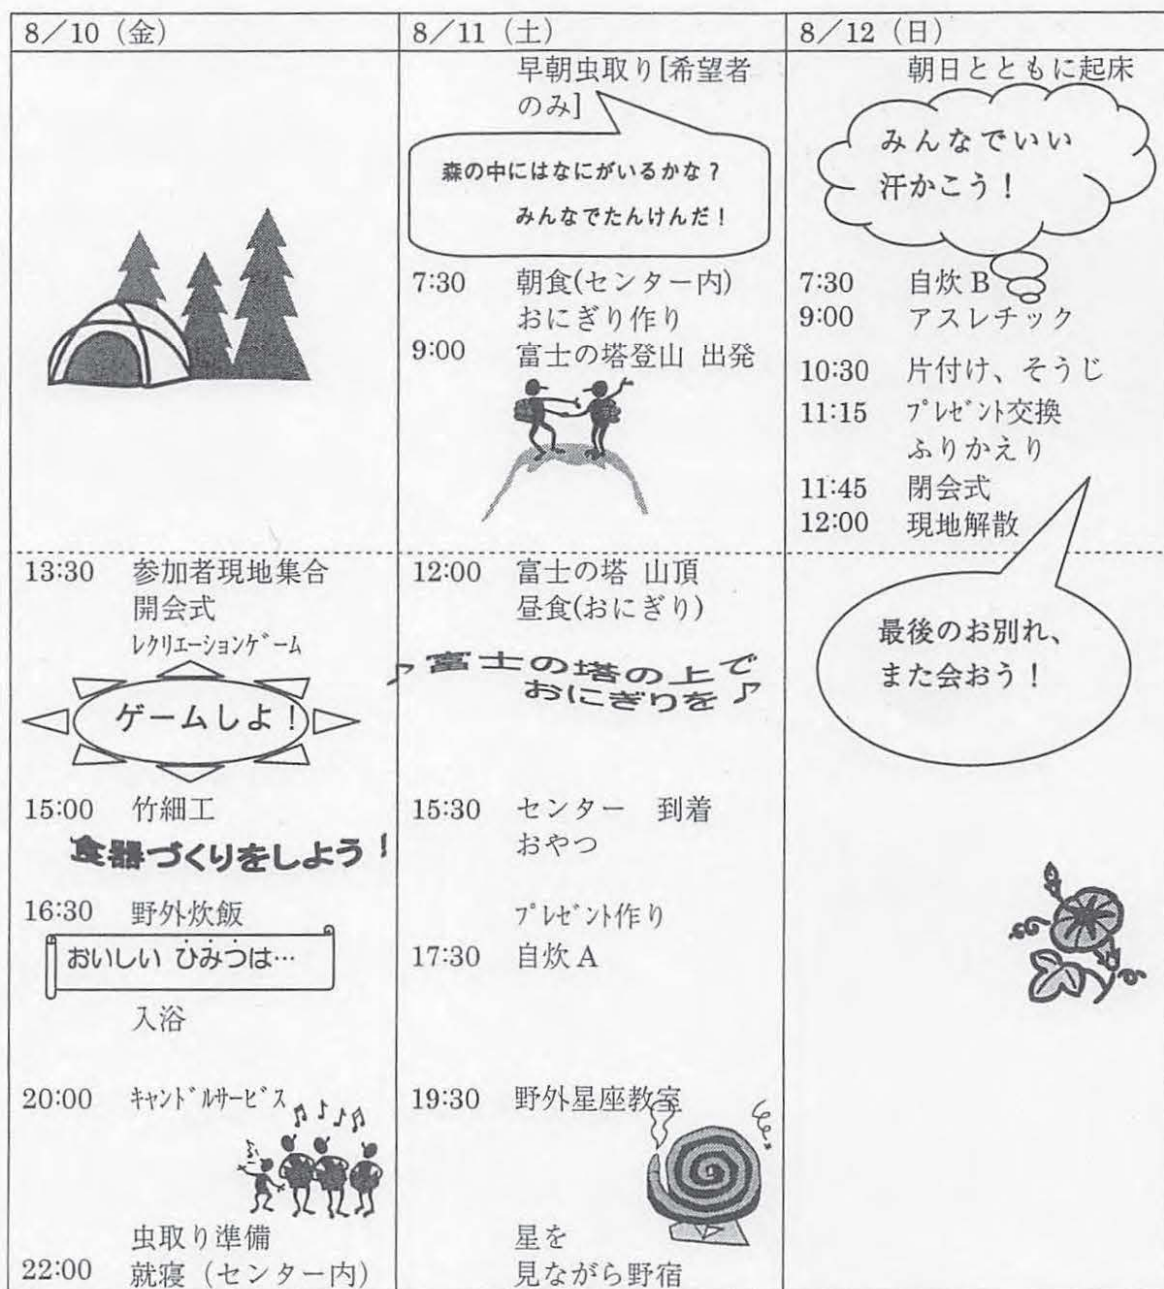 8／10（金）
13:30 参加者現地集合
開会式
ﾚｸﾘｴｰｼｮﾝｹﾞｰﾑ
ゲームしよ！
15:00 竹細工
食器づくりをしよう！
16:30 野外炊飯
おいしい ひみつは…
入浴
20:00 ｷｬﾝﾄﾞﾙｻｰﾋﾞｽ
虫取り準備
22:00 就寝（センター内）
8／11（土）
早朝虫取り[希望者
のみ]
森の中にはなにがいるかな？
みんなでたんけんだ！
7:30 朝食(センター内)
おにぎり作り
9:00 富士の塔登山 出発
12:00 富士の塔 山頂
昼食(おにぎり)
♪富士の塔の上で
おにぎりを♪
15:30 センター 到着
おやつ
ﾌﾟﾚｾﾞﾝﾄ作り
17:30 自炊 A
19:30 野外星座教室
星を
見ながら野宿
8／12（日）
朝日とともに起床
みんなでいい
汗かこう！
7:30 自炊 B
9:00 アスレチック
10:30 片付け、そうじ
11:15 ﾌﾟﾚｾﾞﾝﾄ交換
ふりかえり
11:45 閉会式
12:00 現地解散
最後のお別れ、
また会おう！